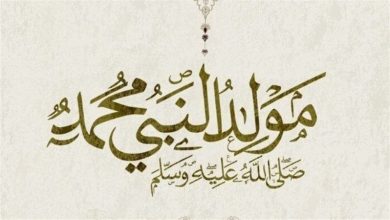 مَولِدُ النَّبِي مُحَمَّد
صَلَّى اللَّهُ عَلَيْهِ وَسَلَّمَ